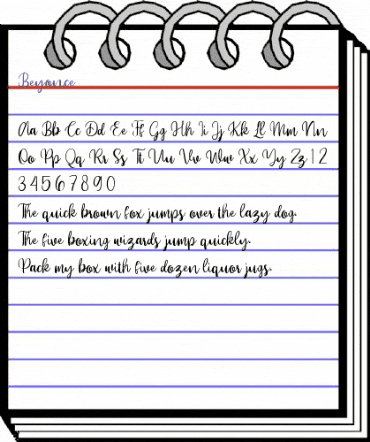 Beyonce
Aa Bb Cc Dd Ee Ff Gg Hh Ii Jj Kk Ll Mm Nn
Oo Pp Qq Rr Ss Tt Uu Vv Ww Xx Yy Zz 1 2
3 4 5 6 7 8 9 0
The quick brown fox jumps over the lazy dog.
The five boxing wizards jump quickly.
Pack my box with five dozen liquor jugs.